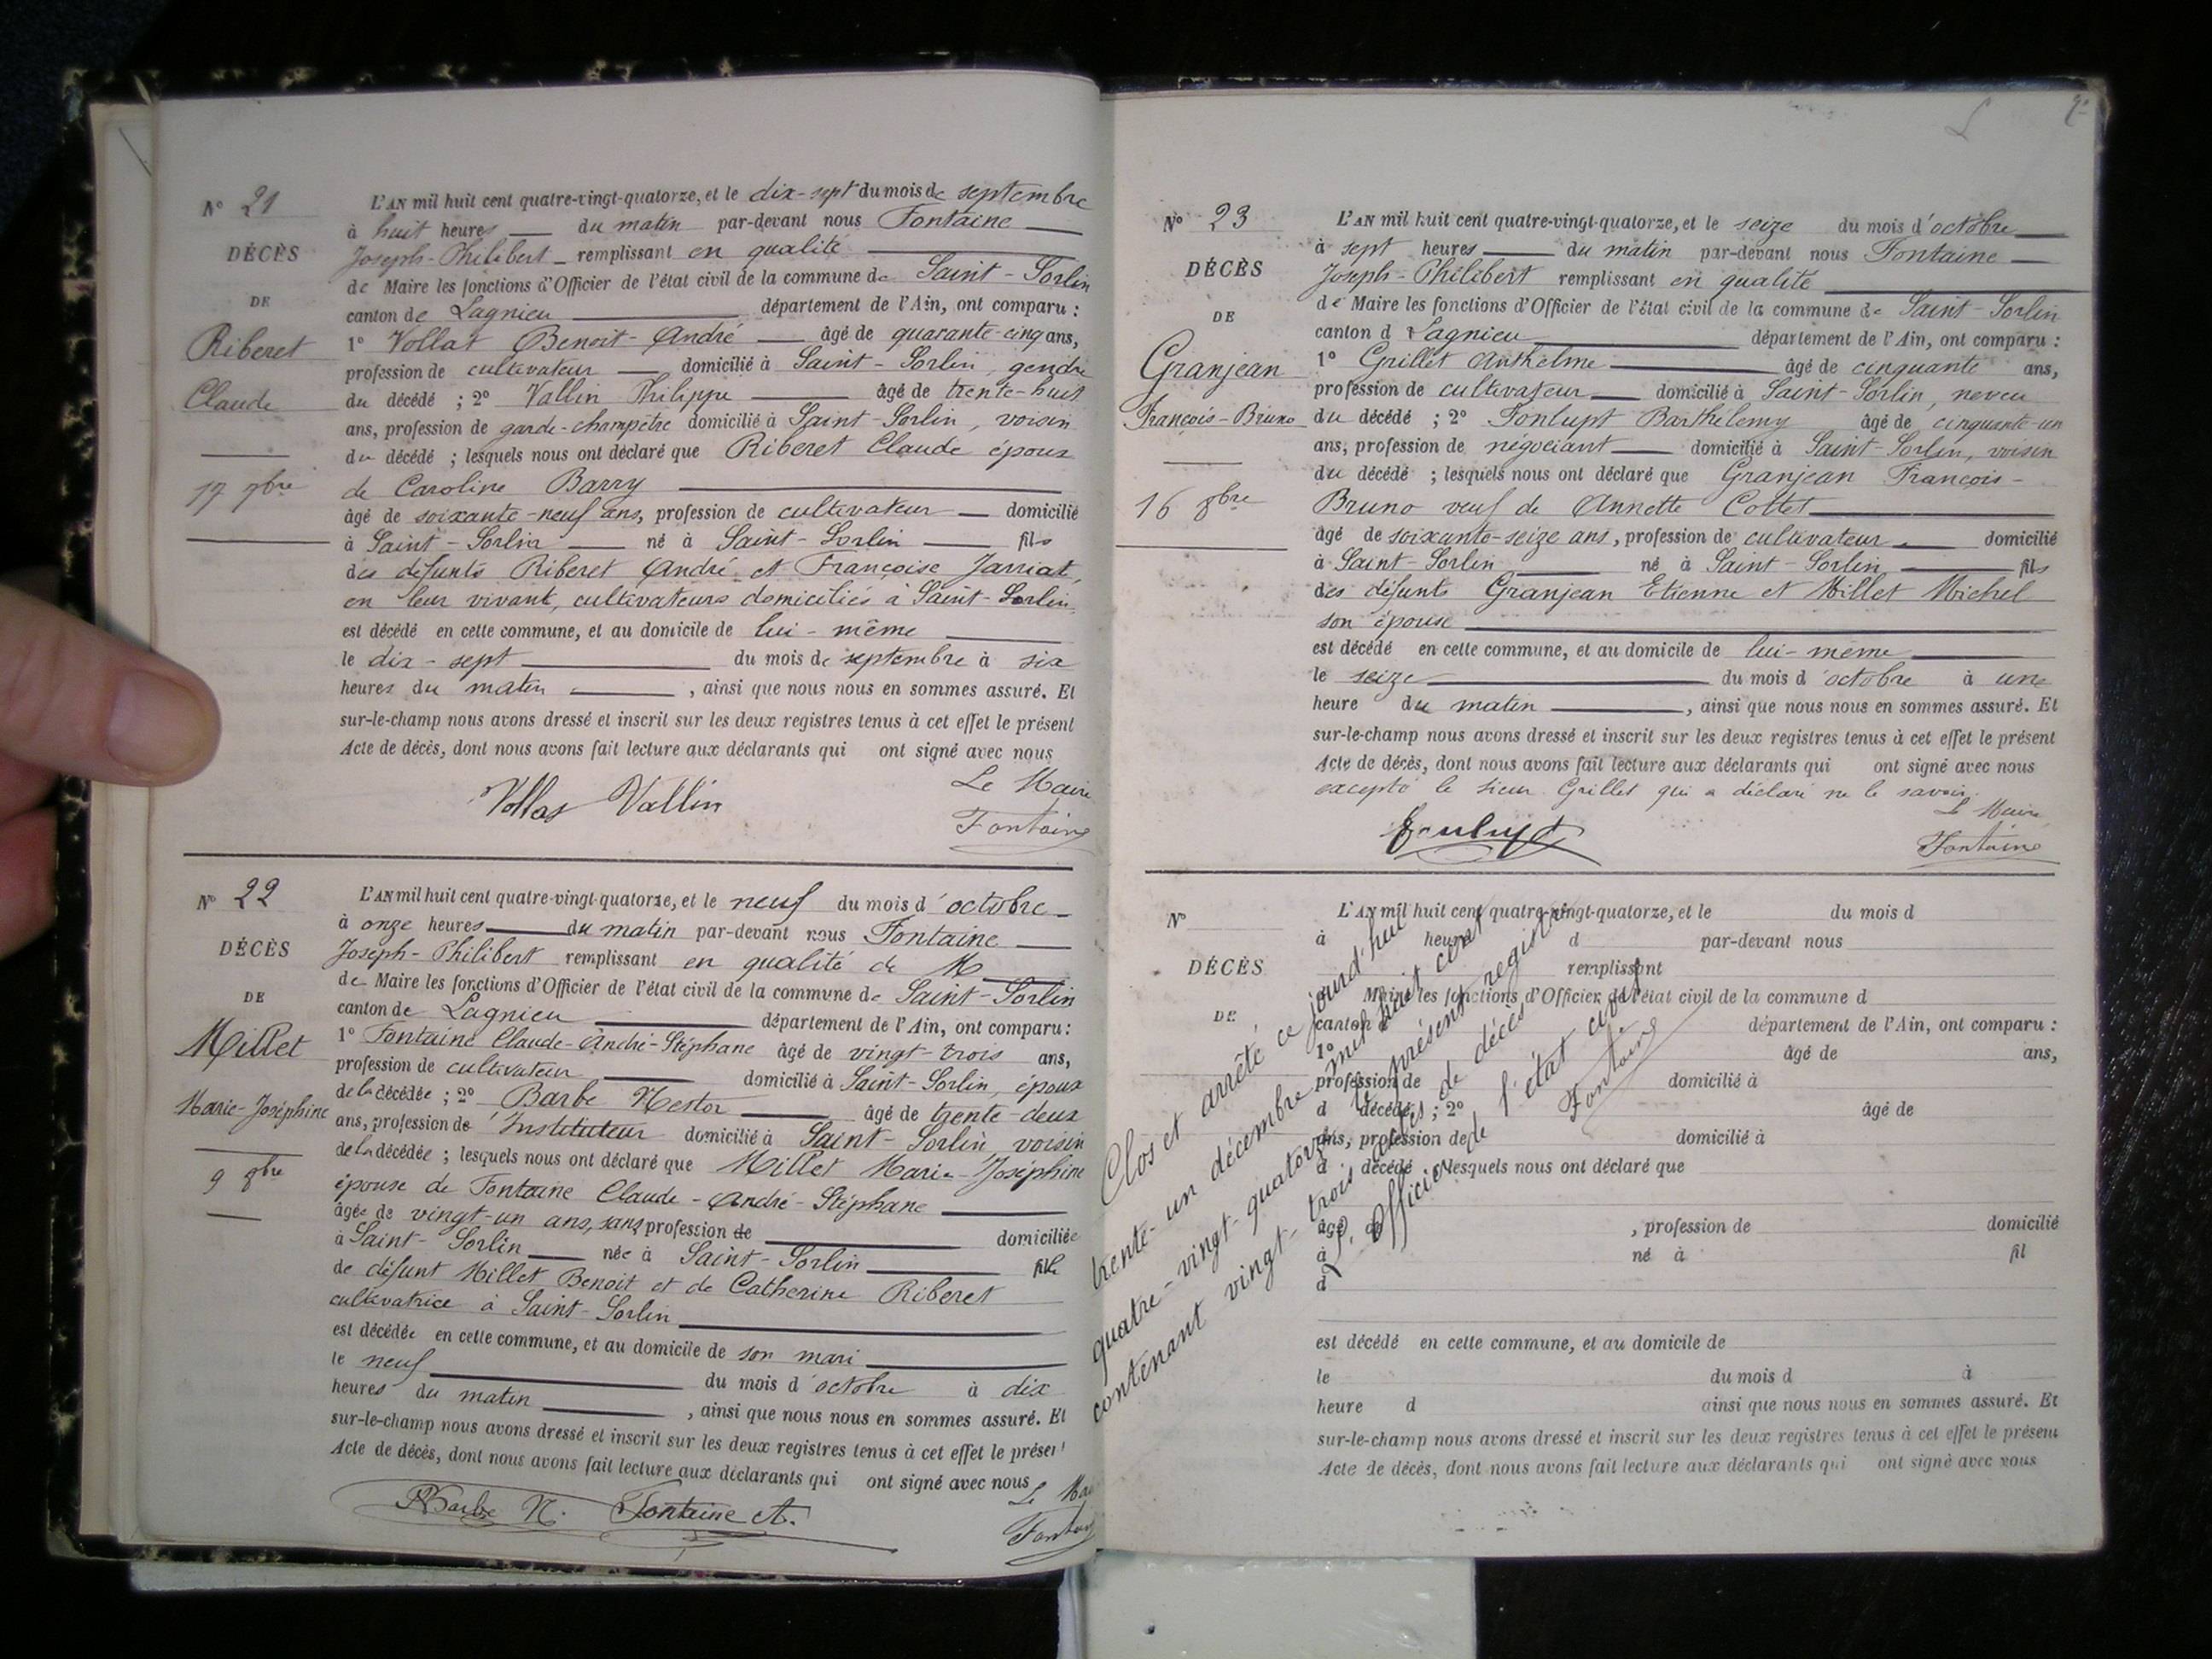 N° 21
DÉCÈS
DE
Riberet
Claude
17 7bre
L'AN mil huit cent quatre-vingt-quatorze, et le dix-sept du mois de septembre
à huit heures du matin par-devant nous Fontaine
Joseph-Philibert remplissant en qualité
de Maire les fonctions d'Officier de l'état civil de la commune de Saint-Sorlin
canton de Lagnieu département de l'Ain, ont comparu :
1° Vollat Benoit-André âgé de quarante-cinq ans,
profession de cultivateur domicilié à Saint-Sorlin, gendre
du décédé ; 2° Vallin Philippe âgé de trente-huit
ans, profession de garde-champêtre domicilié à Saint-Sorlin, voisin
du décédé ; lesquels nous ont déclaré que Riberet Claude époux
de Caroline Barry
âgé de soixante-neuf ans, profession de cultivateur domicilié
à Saint-Sorlin né à Saint-Sorlin fils
des défunts Riberet André et Françoise Jarriat,
en leur vivant, cultivateurs domiciliés à Saint-Sorlin,
est décédé en cette commune, et au domicile de lui-même
le dix-sept du mois de septembre à six
heures du matin , ainsi que nous nous en sommes assuré. Et
sur-le-champ nous avons dressé et inscrit sur les deux registres tenus à cet effet le présent
Acte de décès, dont nous avons fait lecture aux déclarants qui ont signé avec nous
Le Maire
Vollat Vallin
Fontaine
N° 22
DÉCÈS
DE
Millet
Marie-Joséphine
9 8bre
L'AN mil huit cent quatre-vingt-quatorze, et le neuf du mois d'octobre
à onze heures du matin par-devant nous Fontaine
Joseph-Philibert remplissant en qualité de M
de Maire les fonctions d'Officier de l'état civil de la commune de Saint-Sorlin
canton de Lagnieu département de l'Ain, ont comparu :
1° Fontaine Claude-André-Stéphane âgé de vingt-trois ans,
profession de cultivateur domicilié à Saint-Sorlin, époux
de la décédée ; 2° Barbe Nestor âgé de trente-deux
ans, profession de Instituteur domicilié à Saint-Sorlin voisin
de la décédée ; lesquels nous ont déclaré que Millet Marie-Joséphine
épouse de Fontaine Claude-André-Stéphane
âgée de vingt-un ans, sans profession de domiciliée
à Saint-Sorlin née à Saint-Sorlin fille
de défunt Millet Benoit et de Catherine Riberet
cultivatrice à Saint-Sorlin
est décédée en cette commune, et au domicile de son mari
le neuf du mois d'octobre à dix
heures du matin , ainsi que nous nous en sommes assuré. Et
sur-le-champ nous avons dressé et inscrit sur les deux registres tenus à cet effet le présent
Acte de décès, dont nous avons fait lecture aux déclarants qui ont signé avec nous
Le Mai
Barbe N. Fontaine A.
Fontain
N° 23
DÉCÈS
DE
Granjean
François-Bruno
16 8bre
L'AN mil huit cent quatre-vingt-quatorze, et le seize du mois d'octobre
à sept heures du matin par-devant nous Fontaine
Joseph-Philibert remplissant en qualité
de Maire les fonctions d'Officier de l'état civil de la commune de Saint-Sorlin
canton d Lagnieu département de l'Ain, ont comparu :
1° Grillet Anthelme âgé de cinquante ans,
profession de cultivateur domicilié à Saint-Sorlin, neveu
du décédé ; 2° Fonlupt Barthélemy âgé de cinquante-un
ans, profession de négociant domicilié à Saint-Sorlin, voisin
du décédé ; lesquels nous ont déclaré que Granjean François-
Bruno veuf de Annette Cottet
âgé de soixante-seize ans, profession de cultivateur domicilié
à Saint-Sorlin né à Saint-Sorlin fils
des défunts Granjean Etienne et Millet Michel
son épouse
est décédé en cette commune, et au domicile de lui-même
le seize du mois d'octobre à une
heure du matin , ainsi que nous nous en sommes assuré. Et
sur-le-champ nous avons dressé et inscrit sur les deux registres tenus à cet effet le présent
Acte de décès, dont nous avons fait lecture aux déclarants qui ont signé avec nous
excepté le sieur Grillet qui a déclaré ne le savoir.
Le Maire
Fonlupt
Fontaine
N°
DÉCÈS
DE
L'AN mil huit cent quatre-vingt-quatorze, et le du mois d
à heure d par-devant nous
remplissant
Maire les fonctions d'Officier de l'état civil de la commune d
canton d département de l'Ain, ont comparu :
1° âgé de ans,
profession de domicilié à
d décédé ; 2° âgé de
ans, profession de domicilié à
d décédé ; lesquels nous ont déclaré que
âgé de , profession de domicilié
à né à fil
d
est décédé en cette commune, et au domicile de
le du mois d à
heure d ainsi que nous nous en sommes assuré. Et
sur-le-champ nous avons dressé et inscrit sur les deux registres tenus à cet effet le présent
Acte de décès, dont nous avons fait lecture aux déclarants qui ont signé avec nous
Clos et arrêté ce jourd'hui
trente-un décembre mil huit cent
quatre-vingt-quatorze le présent registre
contenant vingt-trois actes de décès
L'Officier de l'état civil
Fontaine